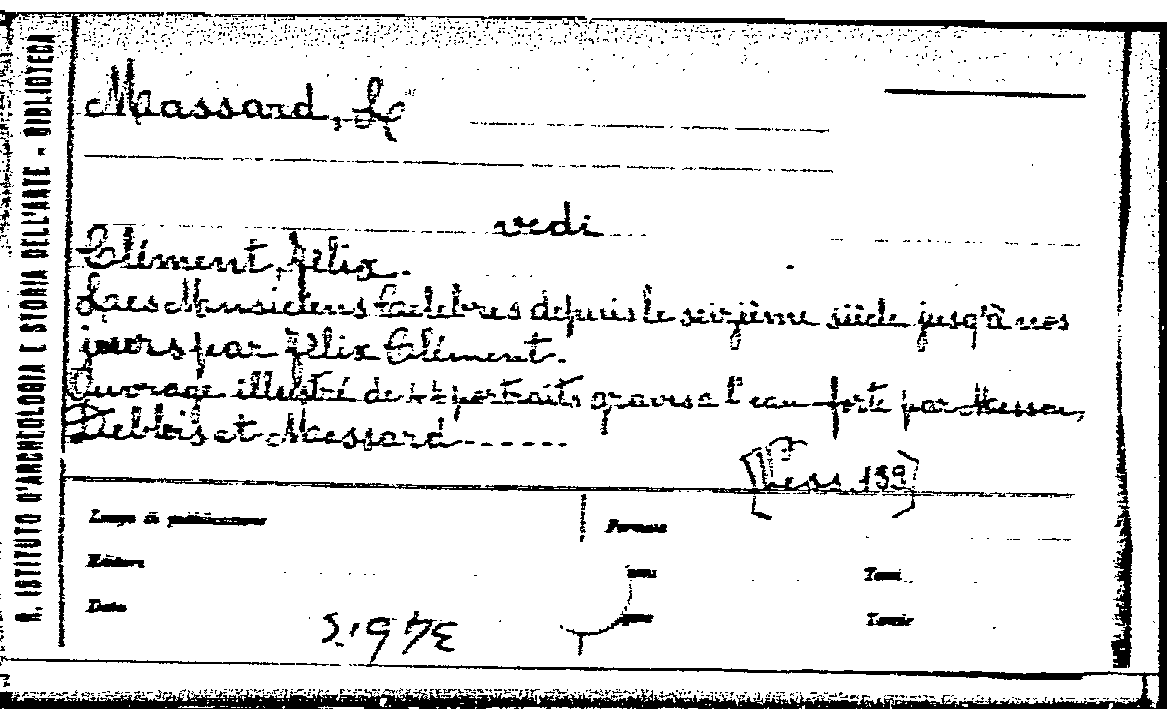 R. ISTITUTO D'ARCHEOLOGIA E STORIA DELL'ARTE - BIBLIOTECA
Massard, L
vedi
Clément, Félix.
Les Musiciens Célèbres depuis le seizième siècle jusq'à nos
jours par Félix Clément.
Ouvrage illustré de 44 portraits gravés a l'eau-forte par Masson,
Deblois et Massard------
[Vess 139]
Luogo di pubblicazione Formato
Editore Tomi
Data Tavole